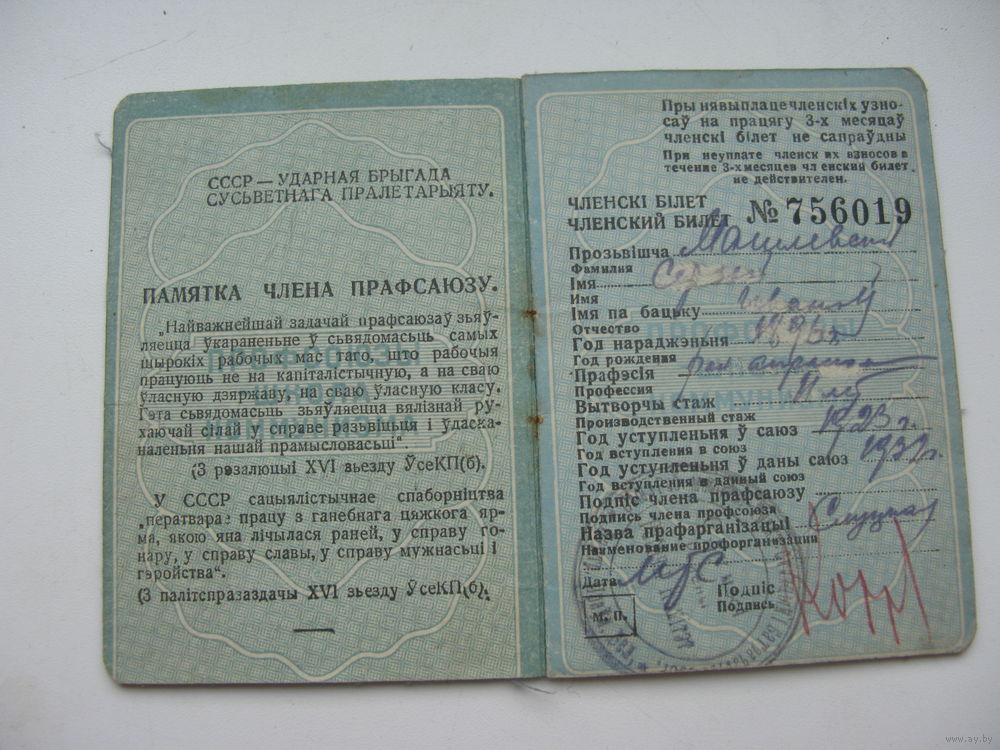 СССР — УДАРНАЯ БРЫГАДА
СУСЬВЕТНАГА ПРАЛЕТАРЫЯТУ.
ПАМЯТКА ЧЛЕНА ПРАФСАЮЗУ.
„Найважнейшай задачай прафсаюзаў зьяў-
ляецца ўкараненьне ў сьвядомасьць самых
шырокіх рабочых мас таго, што рабочыя
працуюць не на капіталістычную, а на сваю
ўласную дзяржаву, на сваю ўласную класу.
Гэта сьвядомасьць зьяўляецца вялізнай ру-
хаючай сілай у справе разьвіцьця і ўдаска-
наленьня нашай прамысловасьці“
(З рэзалюцыі XVI зьезду ЎсеКП(б).
У СССР сацыялістычнае спаборніцтва
„ператварае працу з ганебнага цяжкога яр-
ма, якою яна лічылася раней, у справу го-
нару, у справу славы, у справу мужнасьці і
гэройства“.
(З палітсправаздачы XVI зьезду ЎсеКП(б).
Пры нявыплаце членскіх узно-
саў на працягу 3-х месяцаў
членскі білет не сапраўдны
При неуплате членск их взносов в
течение 3-х месяцев чл енский билет
не действителен.
ЧЛЕНСКІ БІЛЕТ
ЧЛЕНСКИЙ БИЛЕТ № 756019
Прозьвішча
Фамилия
Імя
Имя
Імя па бацьку
Отчество
Год нараджэньня
Год рождения
Прафэсія
Профессия
Вытворчы стаж
Производственный стаж
Год уступленьня ў саюз 1923 г.
Год вступления в союз
Год уступленьня ў даны саюз
Год вступления в данный союз
Подпіс члена прафсаюзу
Подпись члена профсоюза
Назва прафарганізацыі Слуцкая
Наименование профорганизации
Дата МТС
Подпіс
Подпись
М. П.
www.ay.by